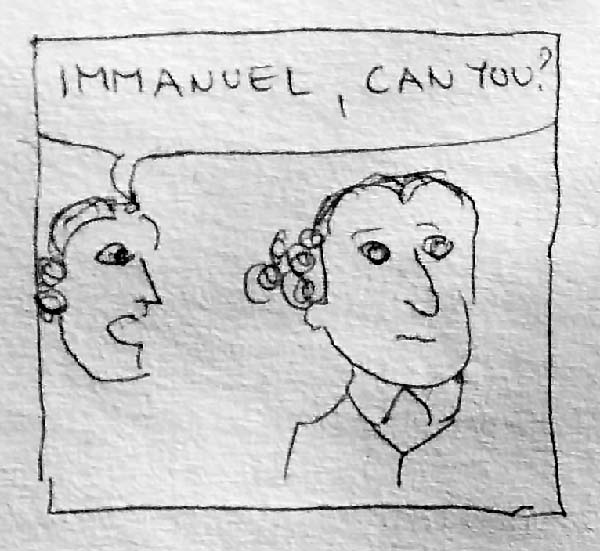 IMMANUEL, CAN YOU?